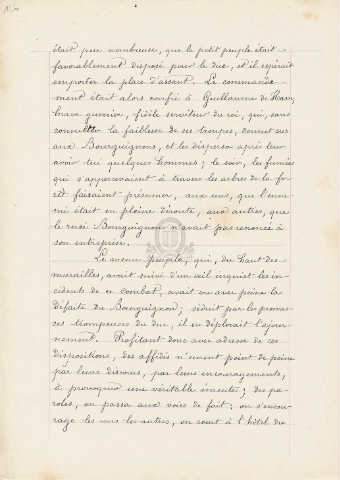 était peu nombreuse, que le petit peuple était
favorablement disposé pour le duc, et il espérait
emporter la place d'assaut. Le commande-
ment était alors confié à Guillaume de Ham,
brave guerrier, fidèle serviteur du roi, qui, sans
connaître la faiblesse de ses troupes, courut sus
aux Bourguignons, et les dispersa après leur
avoir tué quelques hommes ; le soir, les fumées
qui s'apercevaient à travers les arbres de la fo-
rêt faisaient présumer, aux uns, que l'enne-
mi était en pleine déroute, aux autres, que
le rusé Bourguignon n'avait pas renoncé à
son entreprise.
Le menu peuple, qui, du haut des
murailles, avait suivi d'un œil inquiet les in-
cidents de ce combat, avait vu avec peine la
défaite du Bourguignon ; séduit par les promes-
ses trompeuses du duc, il en déplorait l'ajour-
nement. Profitant donc avec adresse de ces
dispositions, des affidés n'eurent point de peine
par leurs discours, par leurs encouragements,
à provoquer une véritable émeute ; des pa-
roles, on passa aux voies de fait ; on s'encou-
rage les uns les autres, on court à l'hôtel du